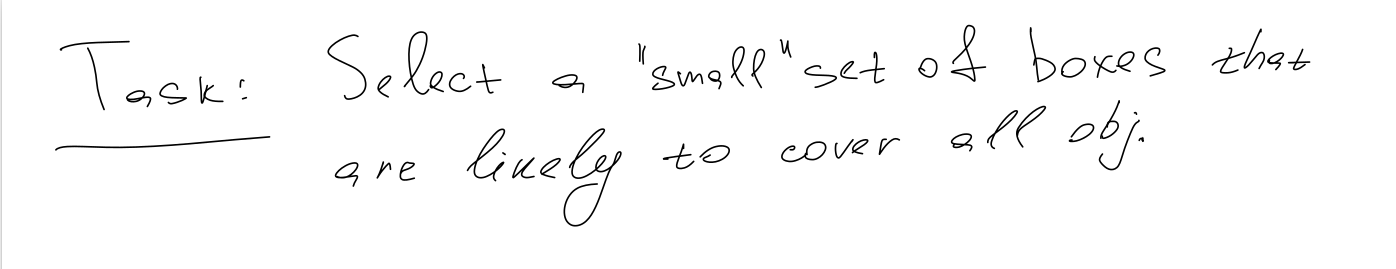 Task: Select a "small" set of boxes that
are likely to cover all obj.